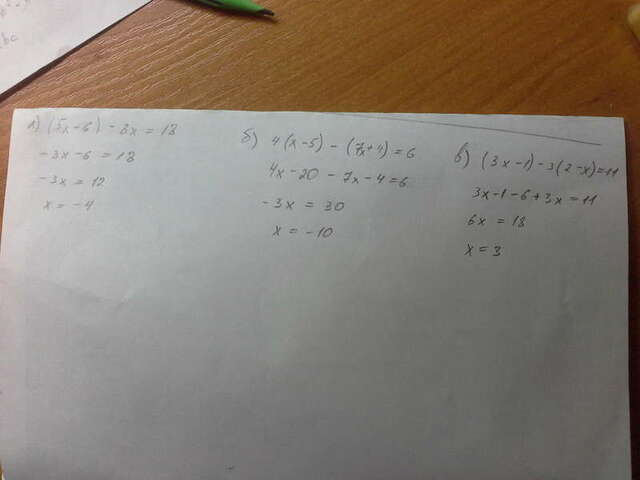 а) (5x-6) - 8x = 18
-3x-6 = 18
-3x = 12
x = -4
б) 4(x-5) - (7x+4) = 6
4x-20 - 7x-4=6
-3x = 30
x = -10
в) (3x-1)-3(2-x)=11
3x-1-6+3x=11
6x = 18
x = 3